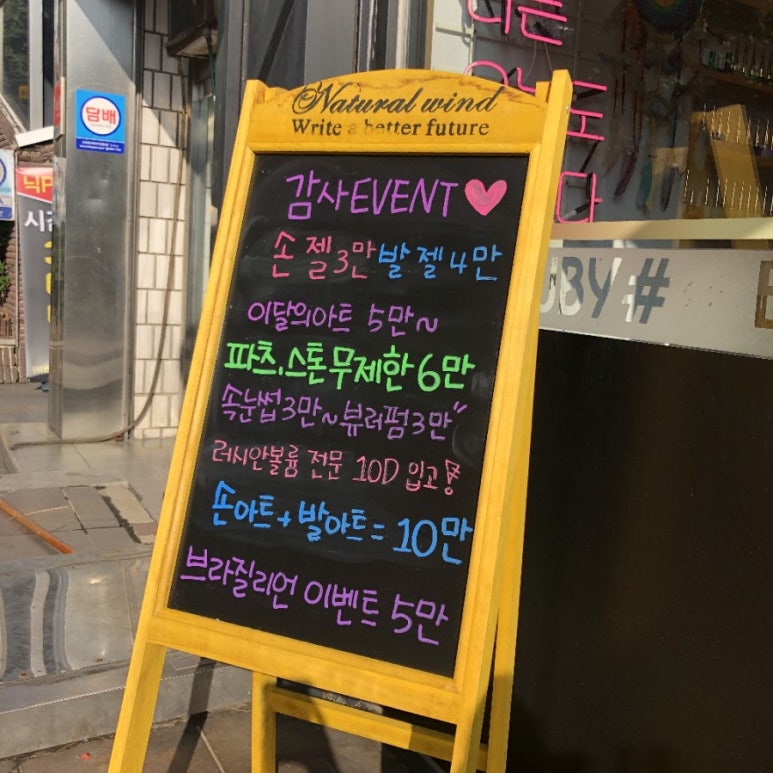 Natural wind
Write a better future
감사EVENT
손 젤 3만 발 젤 4만
이달의아트 5만~
파츠,스톤 무제한 6만
속눈썹3만~뷰러펌3만"
러시안볼륨 전문 10D 입고!
손아트+발아트=10만
브라질리언 이벤트 5만
담배
UBY #